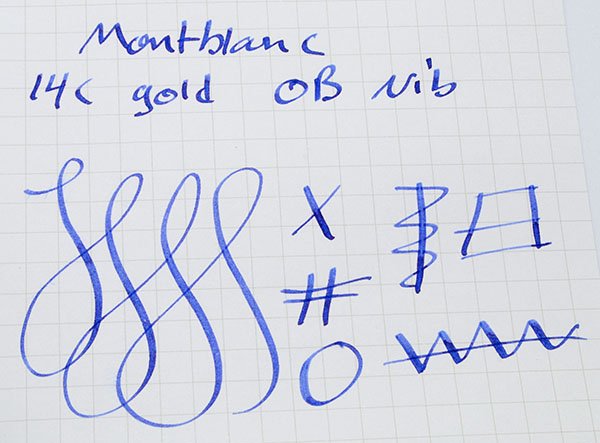 Montblanc
14C gold OB Nib
X
#
O